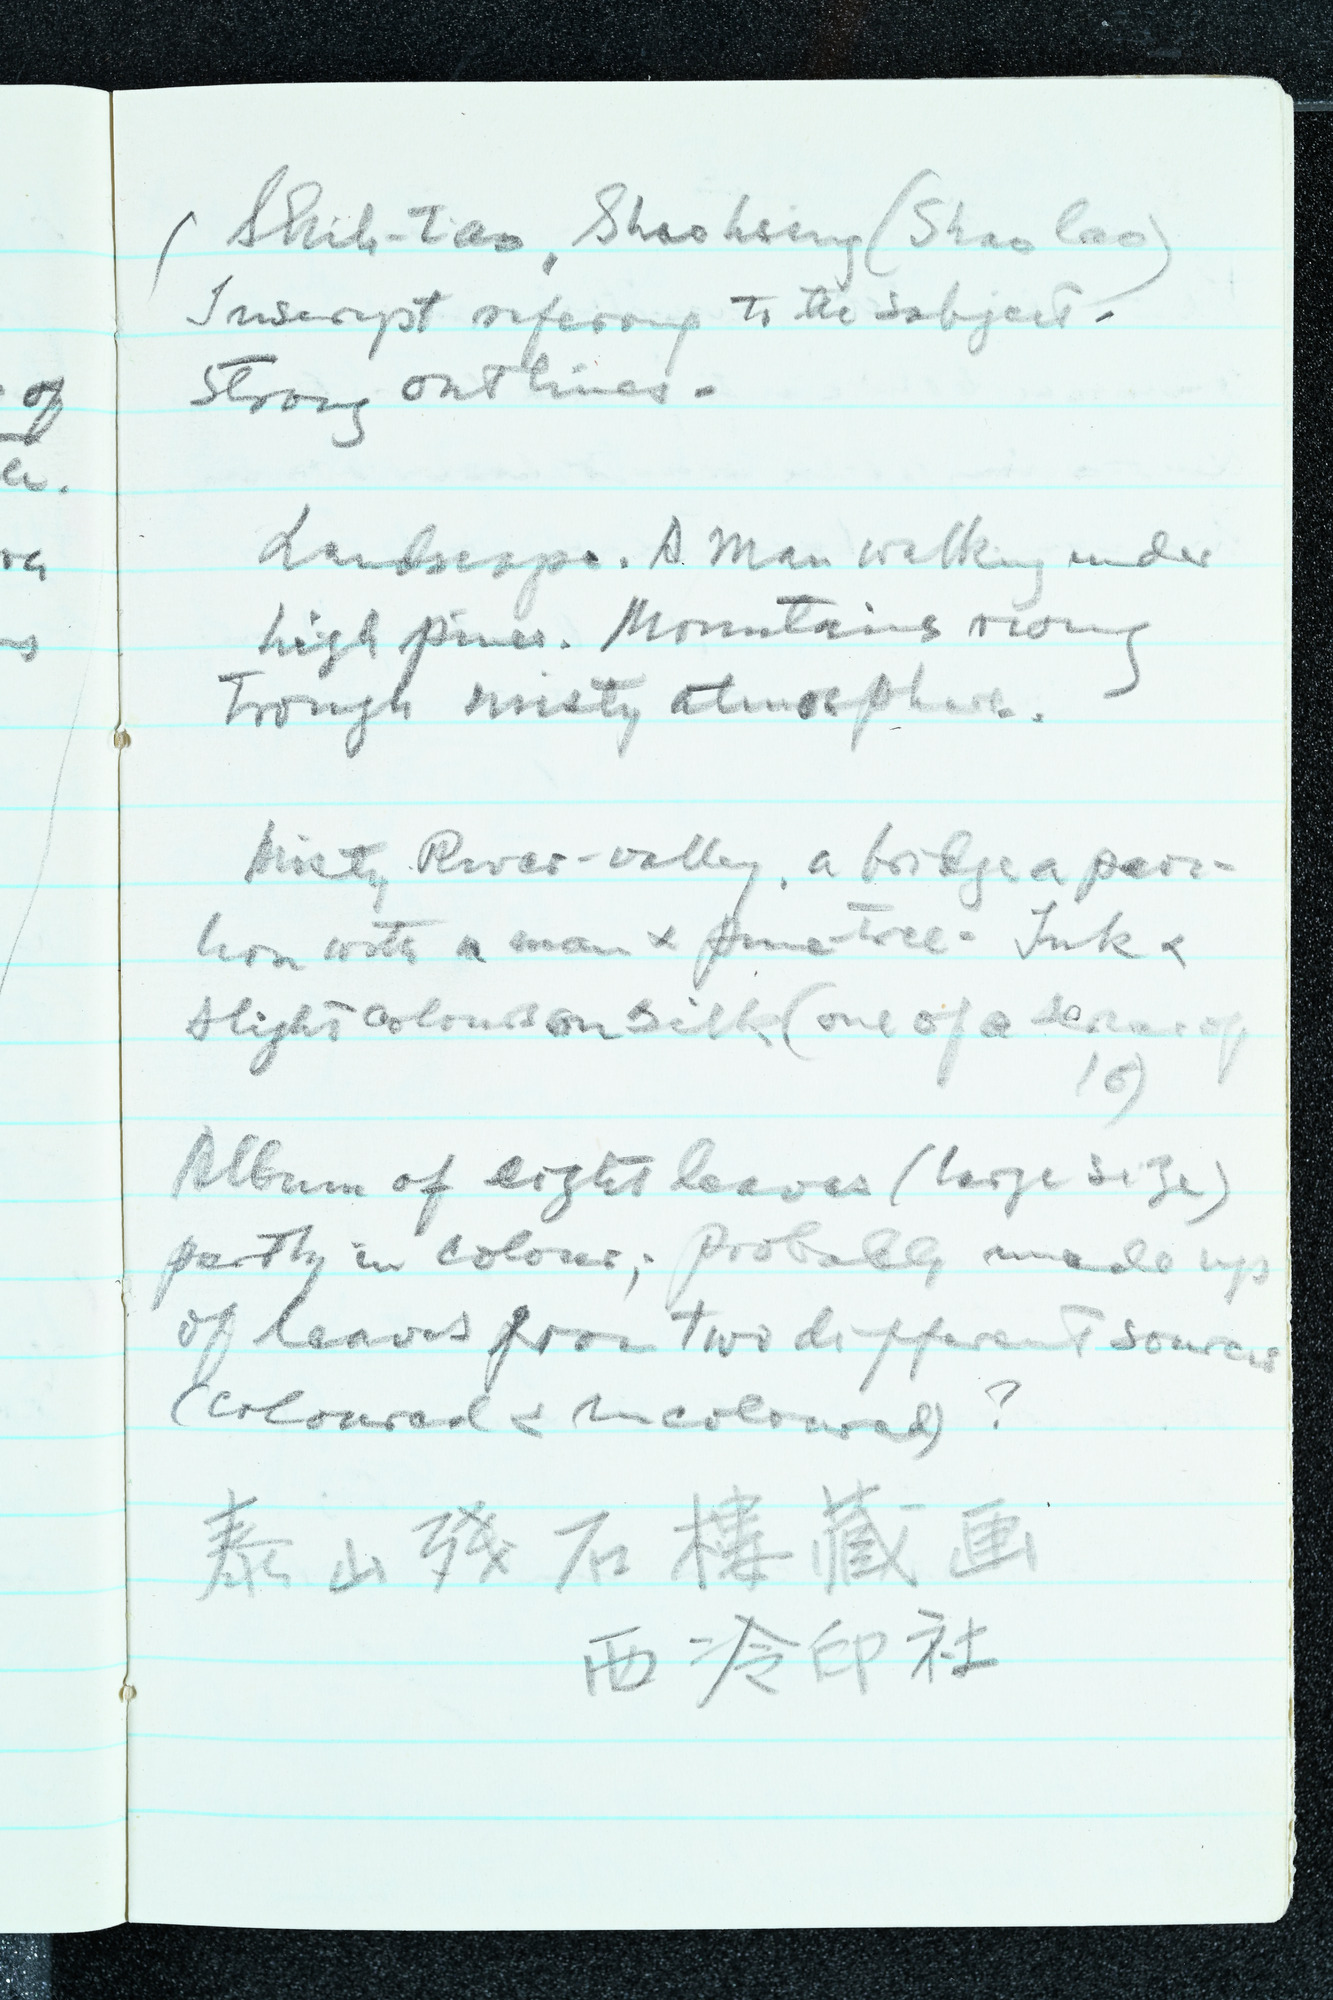 ( Shih-Tao, Shaohsing (Shao lao)
Inscript referring to the subject-
Strong outlines.
Landscape. A Man walking under
high pines. Mountains rising
Trough misty atmosphere.
Misty River-valley, a bridge a pavi-
lion with a man & pine-tree- Ink &
slight colours on silk (one of a series of
10)
Album of eight leaves (large size)
partly in colour; probably made up
of leaves from two different sources
(coloured & uncoloured) ?
泰山殘石樓藏画
西泠印社
of
ns